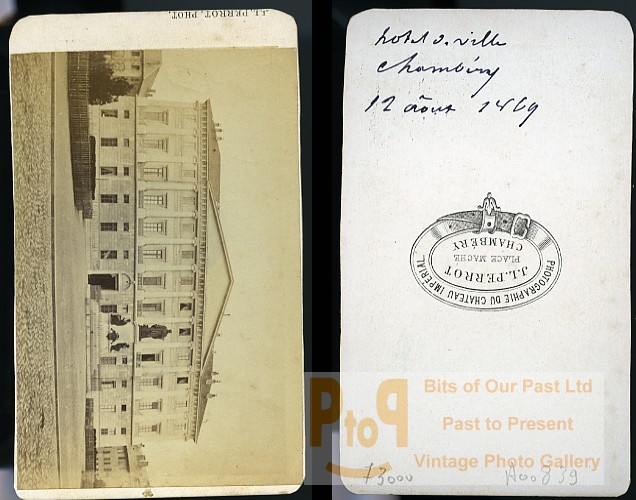 J.L. PERROT, PHOT.
hotel d. ville
Chambéry
12 août 1869
PHOTOGRAPHIE DU CHATEAU IMPÉRIAL
J.L. PERROT
PLACE MACHÉ
CHAMBÉRY
PtoP
Bits of Our Past Ltd
Past to Present
Vintage Photo Gallery